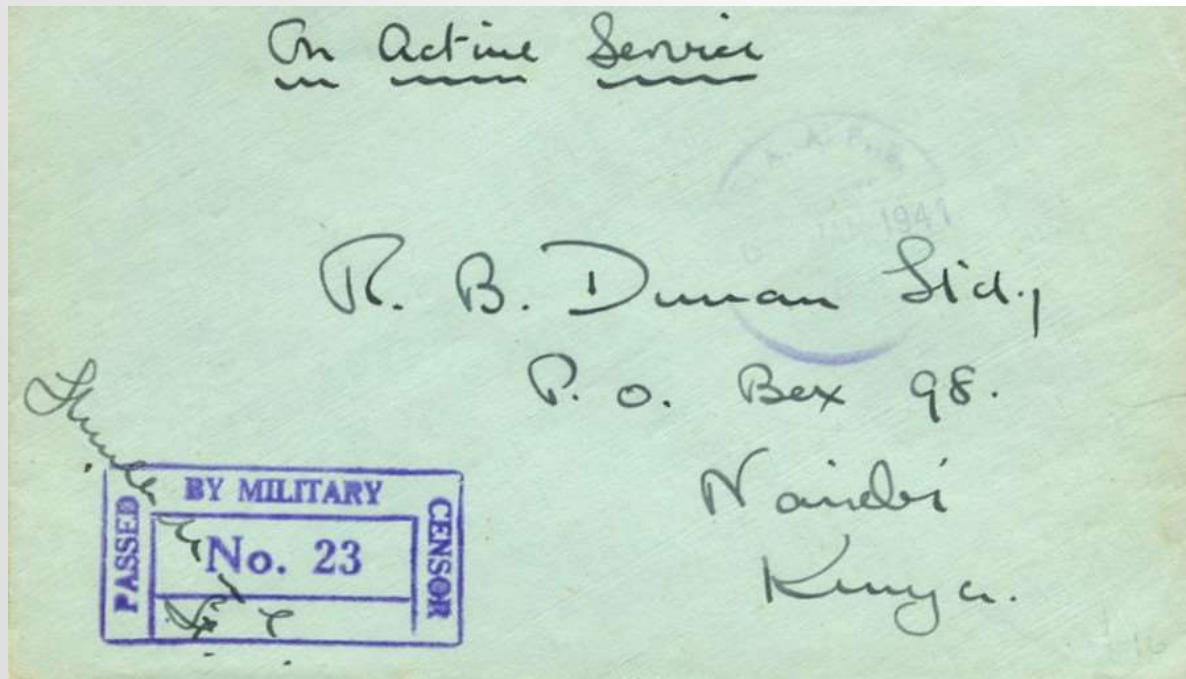 On Active Service
1941
R. B. Duncan Ltd.,
P. O. Box 98.
Nairobi
Kenya.
PASSED BY MILITARY CENSOR
No. 23